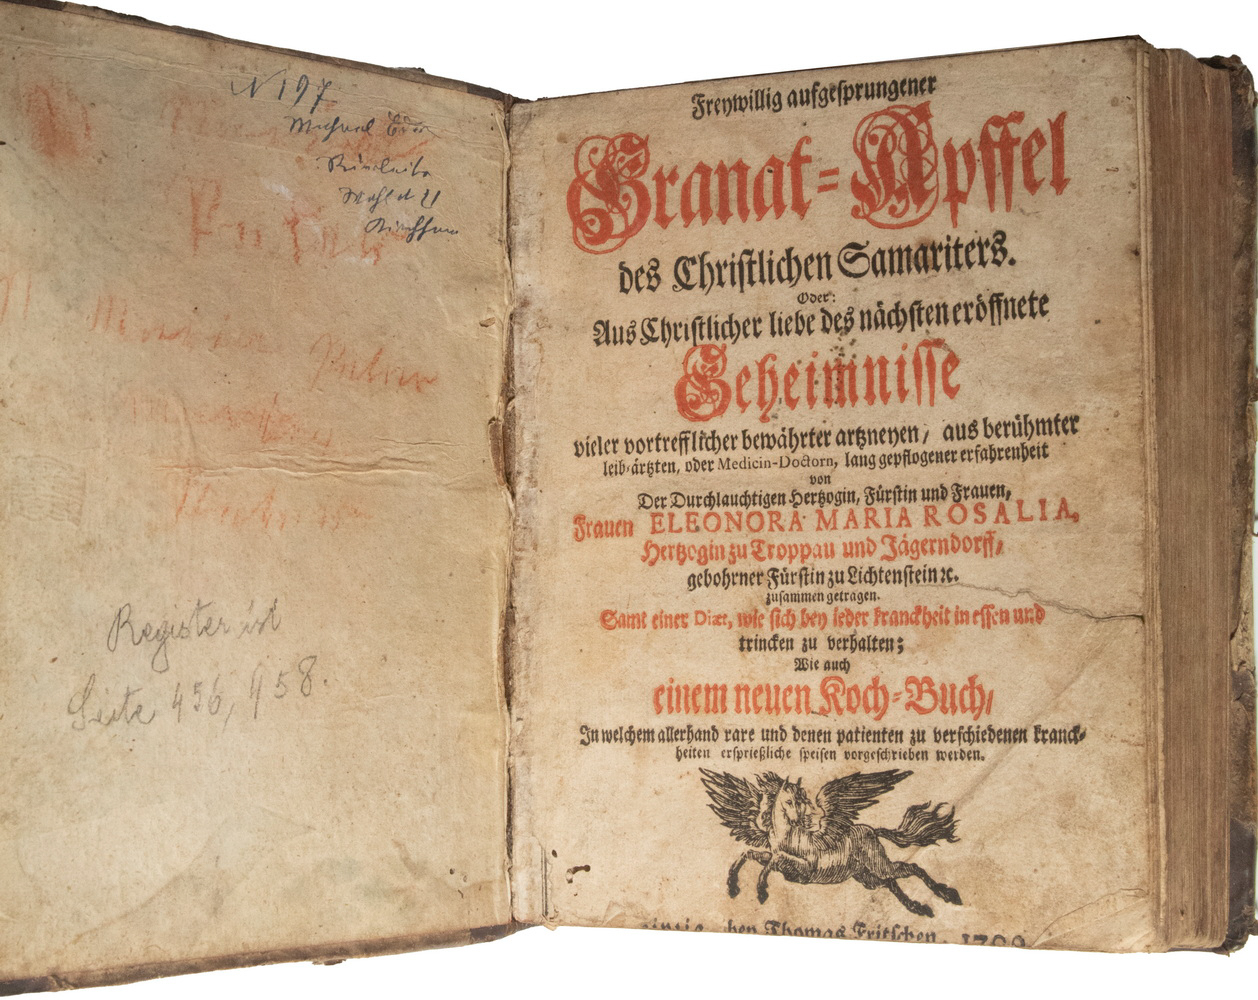 N 197
Michael
Register ist
Seite 456, 958.
Freywillig aufgesprungener
Granat-Apffel
des Christlichen Samariters.
Oder:
Aus Christlicher liebe des nächsten eröffnete
Geheimnisse
vieler vortrefflicher bewährter artzneyen/ aus berühmter
leib-ärtzten, oder Medicin-Doctorn, lang gepflogener erfahrenheit
von
Der Durchlauchtigen Hertzogin, Fürstin und Frauen,
Frauen ELEONORA MARIA ROSALIA,
Hertzogin zu Troppau und Jägerndorff/
gebohrner Fürstin zu Lichtenstein ꝛc.
zusammen getragen.
Samt einer Diæt, wie sich bey ieder kranckheit in essen und
trincken zu verhalten;
Wie auch
einem neuen Koch-Buch/
In welchem allerhand rare und denen patienten zu verschiedenen kranck-
heiten ersprießliche speisen vorgeschrieben werden.
bey Thomas Fritschen, 1709